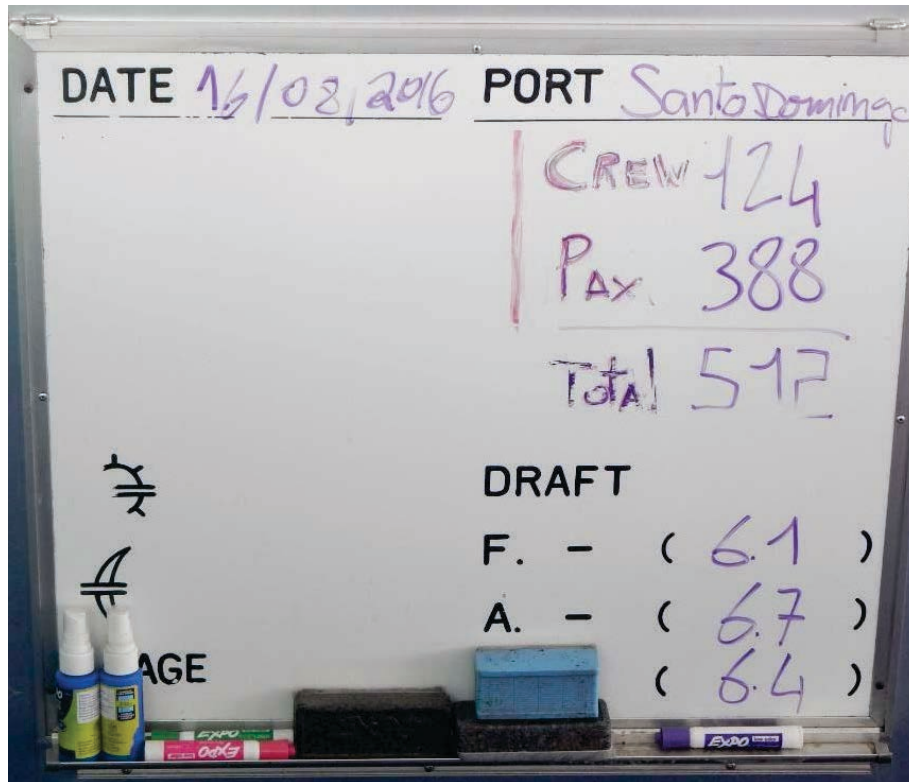 DATE 16/08/2016 PORT Santo Domingo
CREW 124
PAX. 388
Total 512
DRAFT
F. - ( 6.1 )
A. - ( 6.7 )
AGE ( 6.4 )
EXPO
EXPO
EXPO